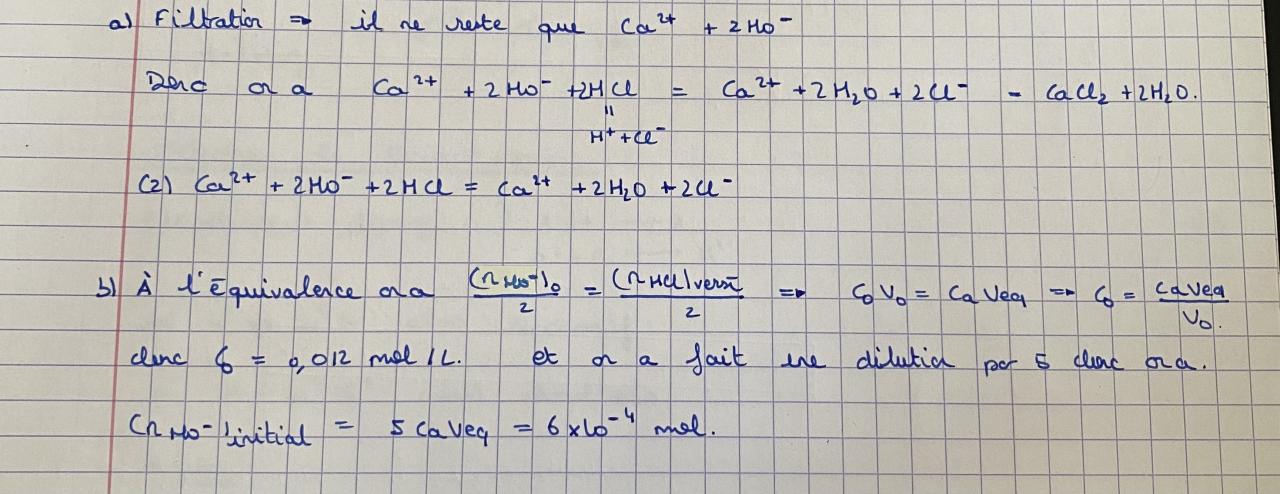 a) Filtration ⇒ il ne reste que Ca²⁺ + 2HO⁻
Donc on a Ca²⁺ + 2HO⁻ + 2HCl = Ca²⁺ + 2H₂O + 2Cl⁻ - CaCl₂ + 2H₂O.
=
H⁺ + Cl⁻
(2) Ca²⁺ + 2HO⁻ + 2HCl = Ca²⁺ + 2H₂O + 2Cl⁻
b) À l'équivalence on a (n HO⁻)₀ / 2 = (n HCl) versé / 2 ⇒ C₀V₀ = CaVeq ⇒ C₀ = CaVeq / V₀.
donc C₀ = 0,012 mol/L. et on a fait une dilution par 5 donc on a.
(n HO⁻) initial = 5 CaVeq = 6 × 10⁻⁴ mol.